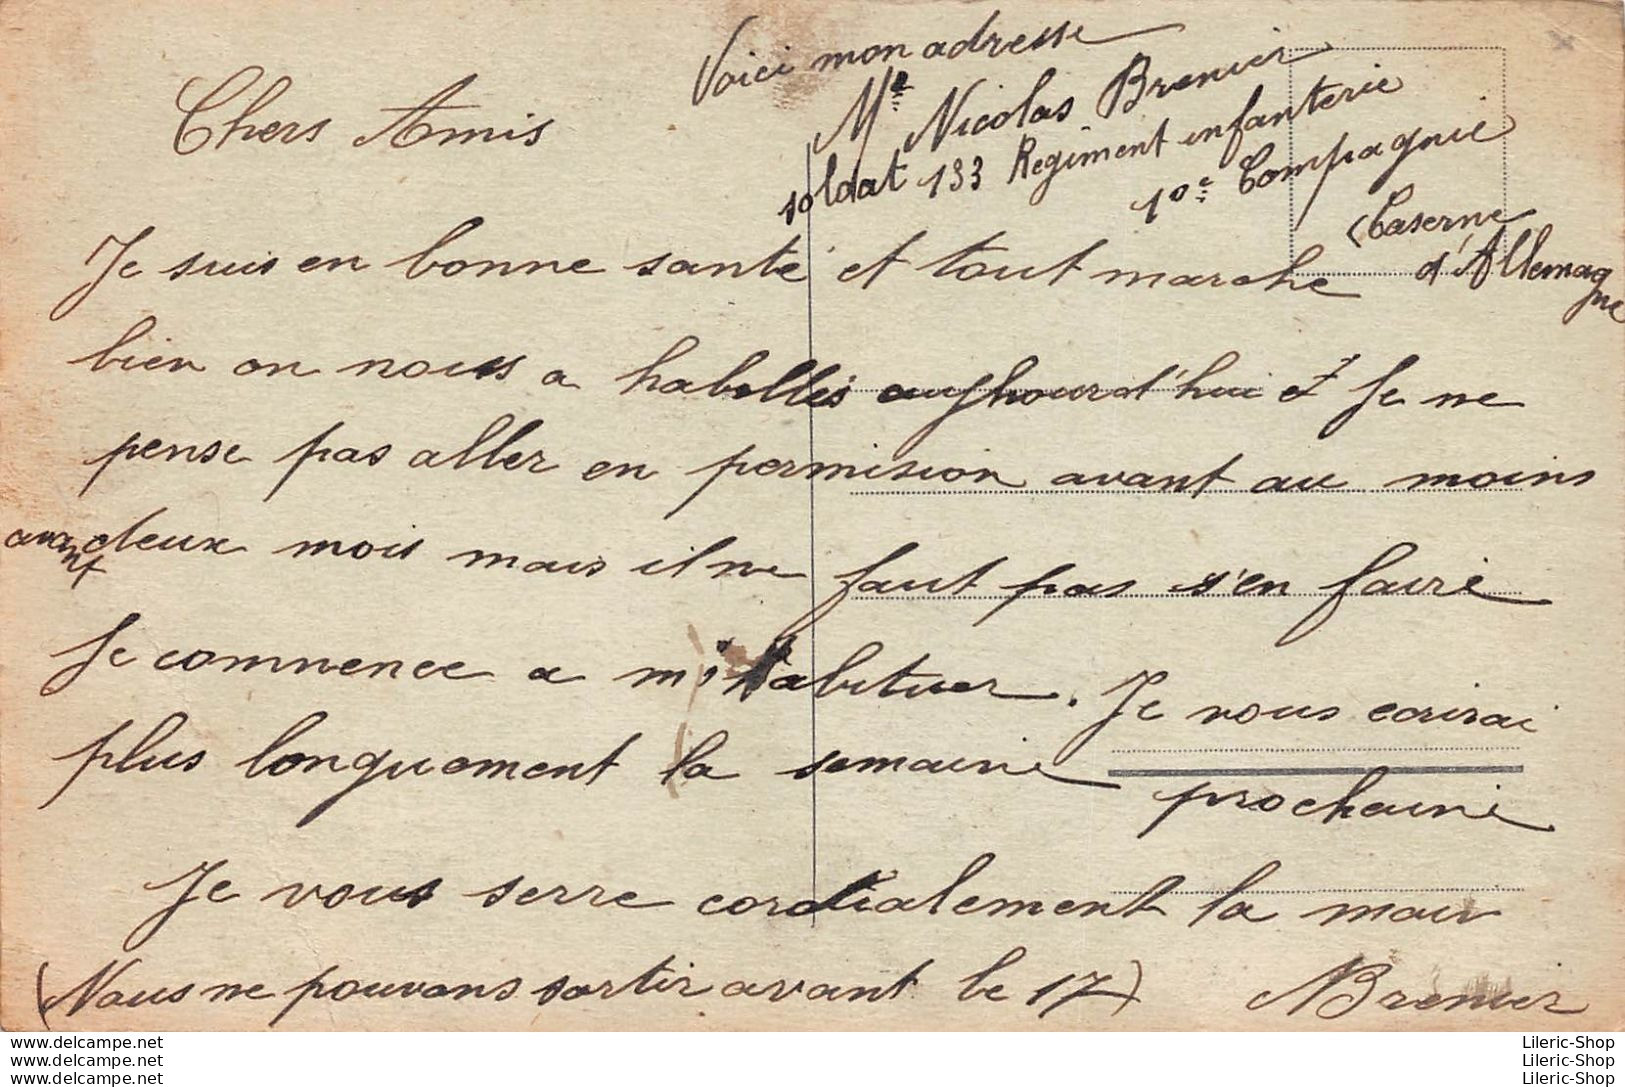 Voici mon adresse
Mr Nicolas Brenier
soldat 133 Regiment infanterie
10e Compagnie
(Caserne
d'Allemagne
Chers Amis
Je suis en bonne santé et tout marche
bien on nous a habillés aujhourd'hui et Je ne
pense pas aller en permision avant au moins
avant deux mois mais il ne faut pas s'en faire
Je commence a m'habituer. Je vous ecrirai
plus longuement la semaine
prochaine
Je vous serre cordialement la main
(Nous ne pouvons sortir avant le 17) NBrenier
Lileric-Shop
Lileric-Shop
Lileric-Shop
www.delcampe.net
www.delcampe.net
www.delcampe.net